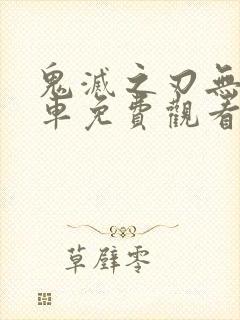 鬼滅之刃無
車免費觀看
草壁零